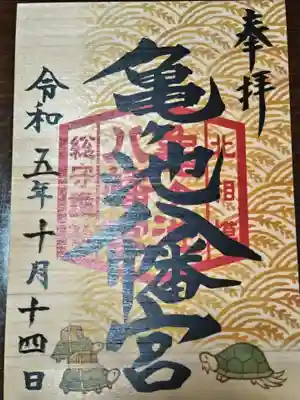 奉拝
亀ヶ池八幡宮
北相模
亀ヶ池
八幡宮
総守護社
令和五年十月十四日